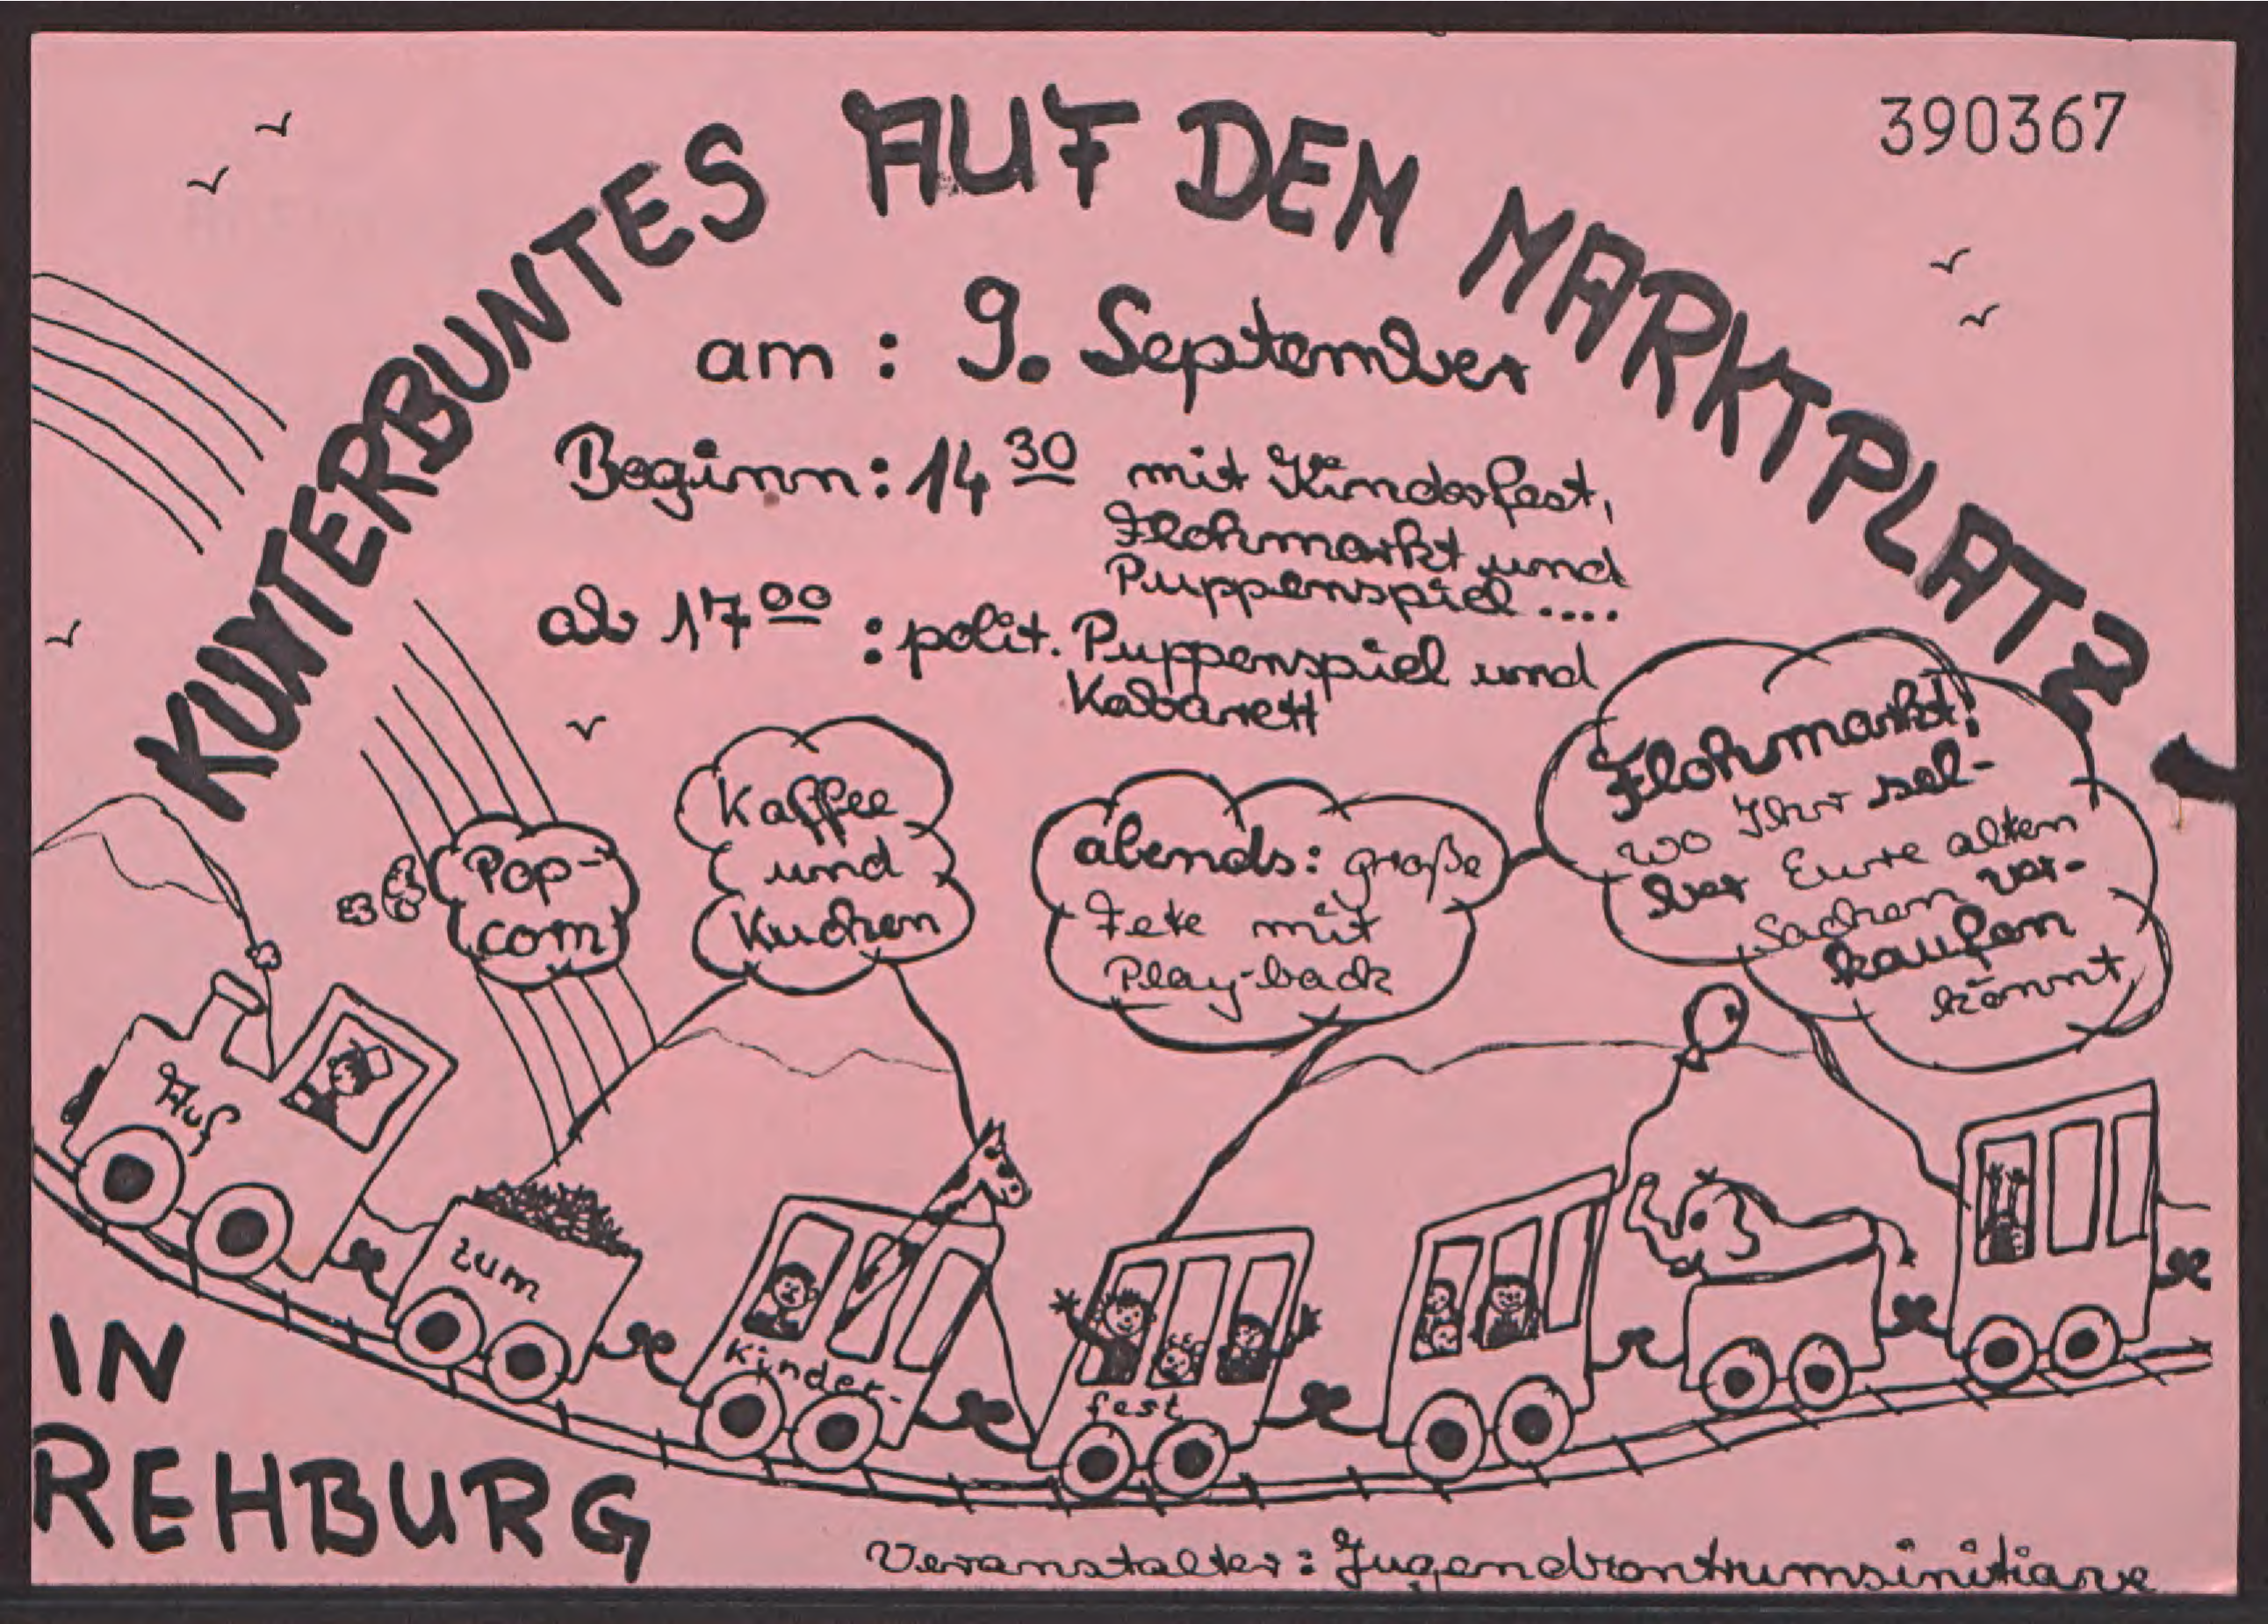 390367
KUNTERBUNTES AUF DEM MARKTPLATZ
am: 9. September
Beginn: 14 30 mit Kinderfest,
Flohmarkt und
Puppenspiel ....
ab 17 00: polit. Puppenspiel und
Kabarett
Pop-
corn
Kaffee
und
Kuchen
abends: große
Fete mit
Play-back
Flohmarkt!
wo Ihr sel-
ber Eure alten
Sachen ver-
kaufen
könnt
Auf
zum
Kinder-
fest
IN
REHBURG
Veranstalter: Jugendzentrumsinitiative